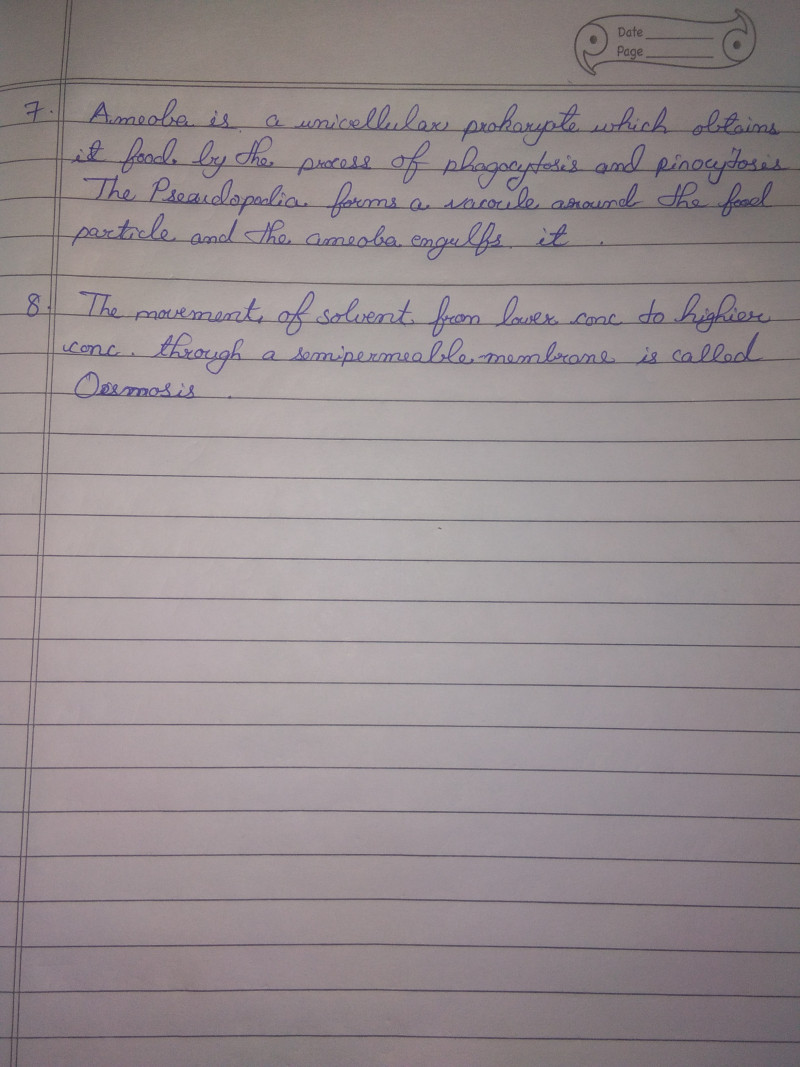 Date
Page
7. Ameoba is a unicellular prokaryote which obtains
it food by the process of phagocytosis and pinocytosis
The Pseaudopodia forms a vacoule around the food
particle and the ameoba engulfs it .
8. The movement of solvent from lower conc to higher
conc. through a semipermeable membrane is called
Oosmosis .